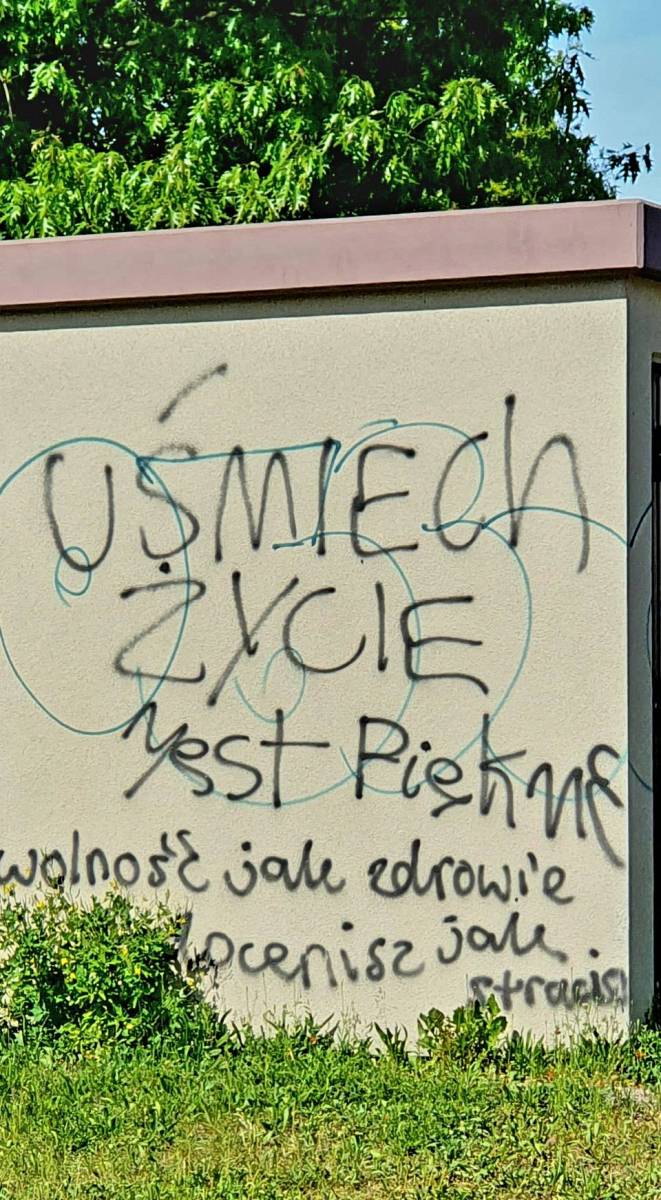 UŚMIECh
ŻYCIE
yEST PięknE
wolność jak zdrowie
docenisz jak
stracisz